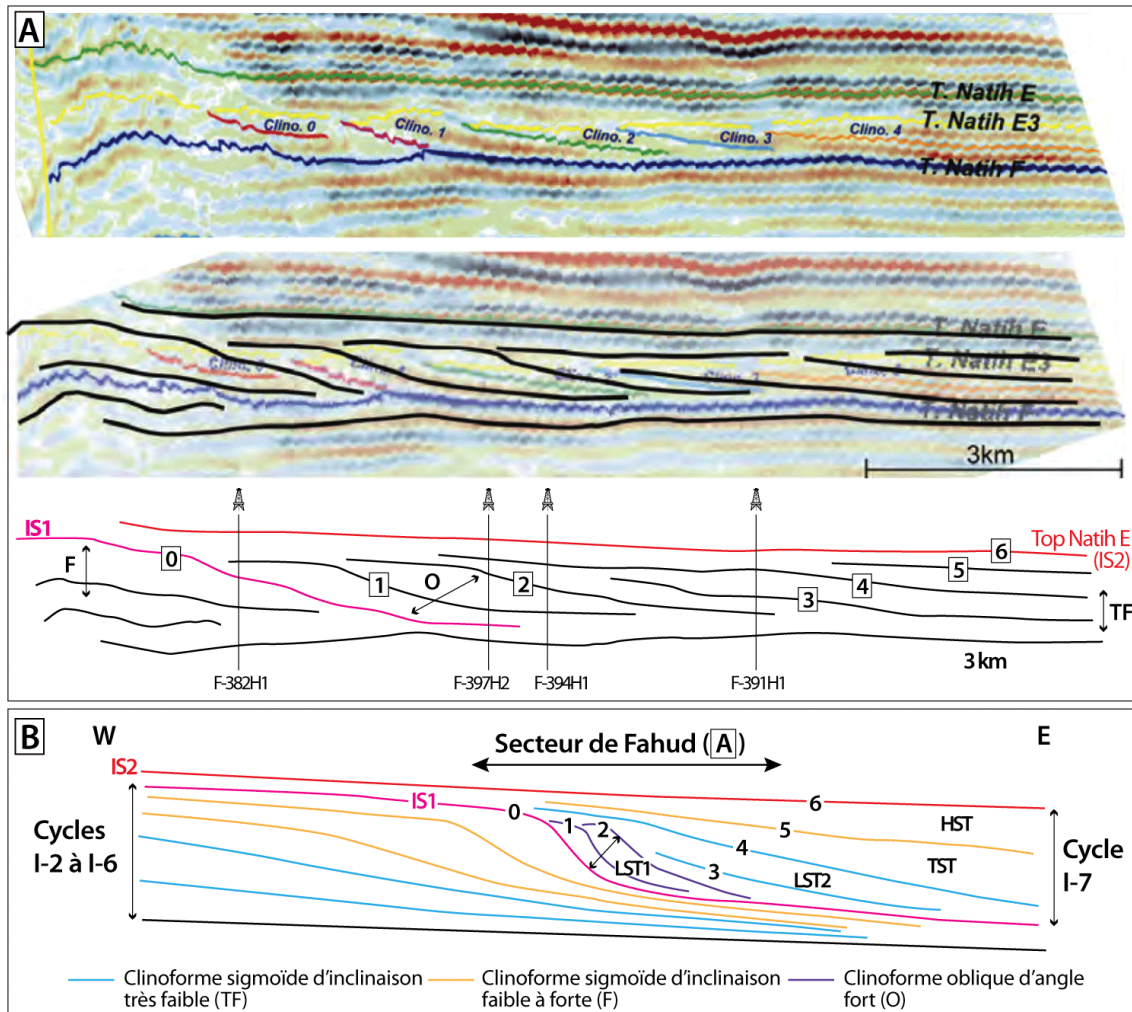 A
T. Natih E
T. Natih E3
Clino. 0
Clino. 1
Clino. 2
Clino. 3
Clino. 4
T. Natih F
T. Natih E
T. Natih E3
Clino. 0
T. Natih F
3km
IS1
F
0
1
O
2
3
4
5
6
Top Natih E
(IS2)
TF
3 km
F-382H1
F-397H2
F-394H1
F-391H1
B
W
Secteur de Fahud (A)
E
IS2
IS1
0
1
2
3
4
5
6
Cycles
I-2 à I-6
LST1
LST2
HST
TST
Cycle
I-7
Clinoforme sigmoïde d'inclinaison
très faible (TF)
Clinoforme sigmoïde d'inclinaison
faible à forte (F)
Clinoforme oblique d'angle
fort (O)